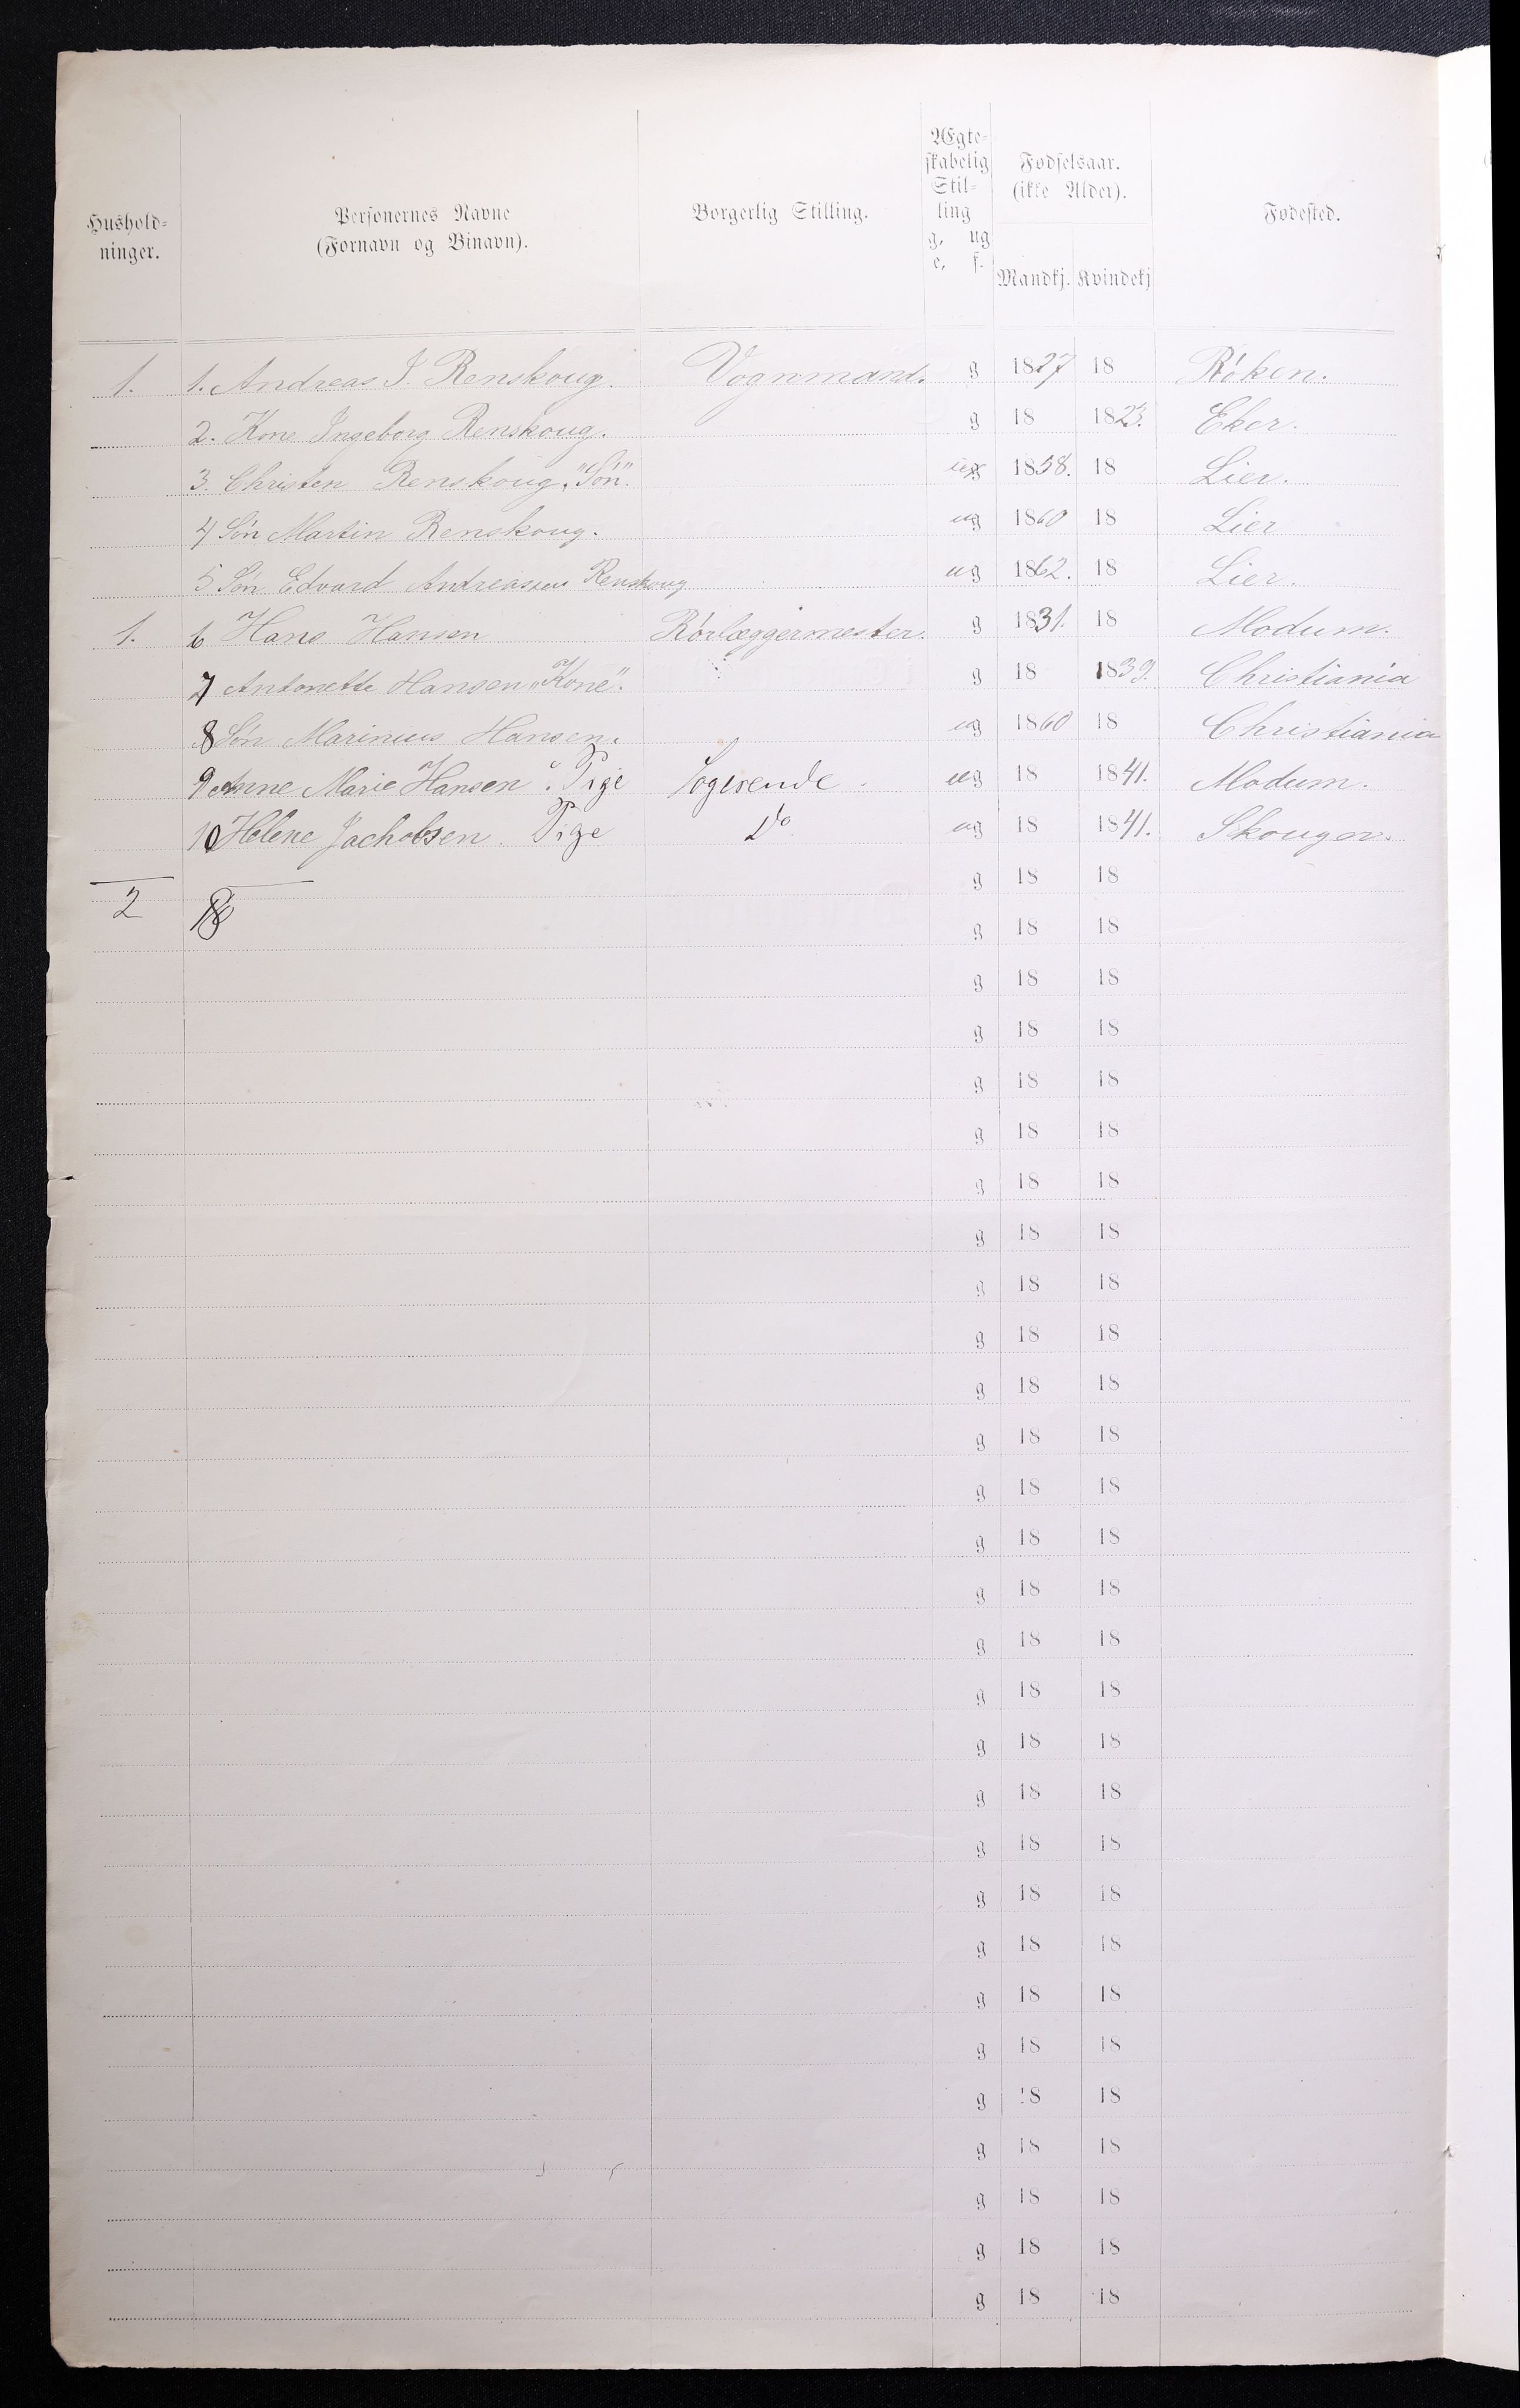 Hushold-
ninger.
Personernes Navne
(Fornavn og Binavn).
Borgerlig Stilling.
Ægte-
skabelig
Stil-
ling
g, ug
e, f.
Fødselsaar.
(ikke Alder).
Mandkj. Kvindekj
Fødested.
1. 1. Andreas J. Renskoug. Vognmand. g 1827 18 Röken.
2. Kone Ingeborg Renskoug. g 18 1823. Eker.
3. Christen Renskoug. "Sön" ug 1858. 18 Lier.
4 Sön Martin Renskoug. ug 1860 18 Lier
5 Sön Edvard Andreassen Renskoug ug 1862. 18 Lier.
1. 6 Hans Hansen Rörlæggermester. g 1831. 18 Modum.
7 Antonette Hansen "Kone". g 18 1839. Christiania
8 Sön Marinius Hansen. ug 1860 18 Christiania
9 Anne Marie Hansen "Pige Logerende ug 18 1841. Modum.
10 Helene Jachobsen. Pige Do ug 18 1841. Skouger.
g 18 18
2 g 18 18
g 18 18
g 18 18
g 18 18
g 18 18
g 18 18
g 18 18
g 18 18
g 18 18
g 18 18
g 18 18
g 18 18
g 18 18
g 18 18
g 18 18
g 18 18
g 18 18
g 18 18
g 18 18
g 18 18
g 18 18
g 18 18
g 18 18
g 18 18
g 18 18
g 18 18
g 18 18
g 18 18